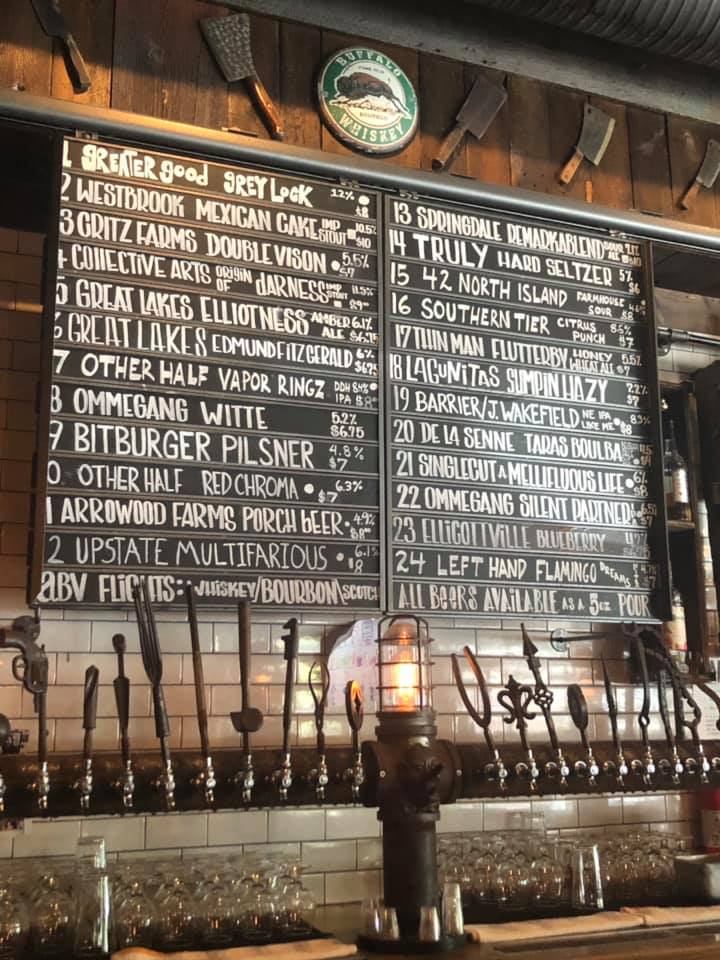 BUFFALO
WHISKEY
1 GREATER GOOD GREY LOCK 12% $8
2 WESTBROOK MEXICAN CAKE IMP STOUT 10.5% $10
3 GRITZ FARMS DOUBLE VISON 5.5% $7
4 COllECTIVE ARTS ORIGIN OF dARNESS IMP STOUT 11.5%
5 GREAT LAKES ELLIOTNESS AMBER ALE 6.1% $6.75
6 GREAT LAKES EDMUND FITZGERALD 6%
7 OTHER HALF VAPOR RINGZ DDH IPA 8.4% $8
8 OMMEGANG WITTE 5.2% $6.75
9 BITBURGER PILSNER 4.8% $7
0 OTHER HALF RED CHROMA 6.3% $7
1 ARROWOOD FARMS PORCH bEER 4.9% $8
2 UPSTATE MULTIFARIOUS 6.1% 8
ABV FLIGHTS: WHISKEY/BOURBON\SCOTCH
13 SPRINGDALE REMARKABLEND SOUR ALE $10
14 TRULY HARD SELTZER 5% $6
15 42 NORTH ISLAND FARMHOUSE SOUR $8
16 SOUTHERN TIER CITRUS PUNCH 8.5% $7
17 THIN MAN FLUTTERBY HONEY WHEAT ALE 5.5% $7
18 LAGUNITAS SUMPIN HAZY 7.2% $7
19 BARRIER/J. WAKEFIELD NE IPA LIKE ME 8.3% $8
20 DE LA SENNE TARAS BOULBA
21 SINGLECUT A MELLIFLUOUS LIFE 6% $8
22 OMMEGANG SILENT PARTNER $7
23 ELLICOTTVILLE BLUEBERRY
24 LEFT HAND FLAMINGO DREAMS $7
ALL BEERS AVAILABLE AS A 5oz POUR